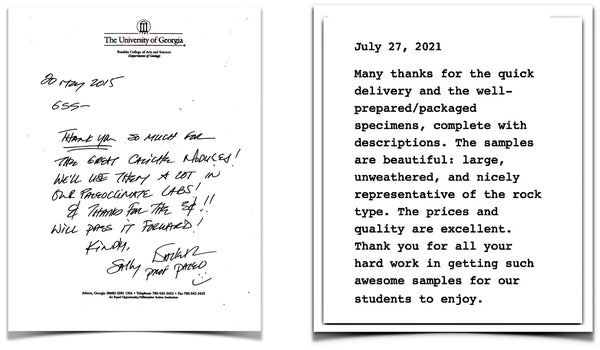 The University of Georgia
Franklin College of Arts and Sciences
Department of Geology
20 May 2015
GSS-
Thank you so much for
the great caliche nodules!
We'll use them a lot in
our paleoclimate labs!
& thanks for the
Will pass it forward!
Kindly,
Sally
prof paleo
Athens, Georgia 30602-2501 USA • Telephone 706-542-2652 • Fax 706-542-2425
An Equal Opportunity/Affirmative Action Institution
July 27, 2021
Many thanks for the quick
delivery and the well-
prepared/packaged
specimens, complete with
descriptions. The samples
are beautiful: large,
unweathered, and nicely
representative of the rock
type. The prices and
quality are excellent.
Thank you for all your
hard work in getting such
awesome samples for our
students to enjoy.